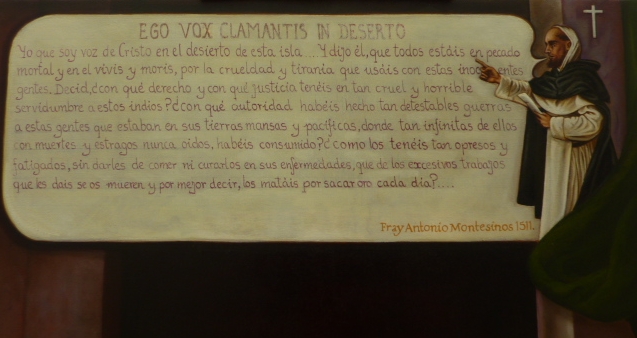 EGO VOX CLAMANTIS IN DESERTO
Yo que soy voz de Cristo en el desierto de esta isla....Y dijo él, que todos estáis en pecado
mortal y en el vivís y morís, por la crueldad y tiranía que usáis con estas inocentes
gentes. Decid, ¿con qué derecho y con qué justicia tenéis en tan cruel y horrible
servidumbre a estos indios? ¿con qué autoridad habéis hecho tan detestables guerras
a estas gentes que estaban en sus tierras mansas y pacíficas, donde tan infinitas de ellos
con muertes y estragos nunca oídos, habéis consumido? ¿como los tenéis tan opresos y
fatigados, sin darles de comer ni curarlos en sus enfermedades, que de los excesivos trabajos
que les dais se os mueren y por mejor decir, los matáis por sacar oro cada día?....
Fray Antonio Montesinos 1511.